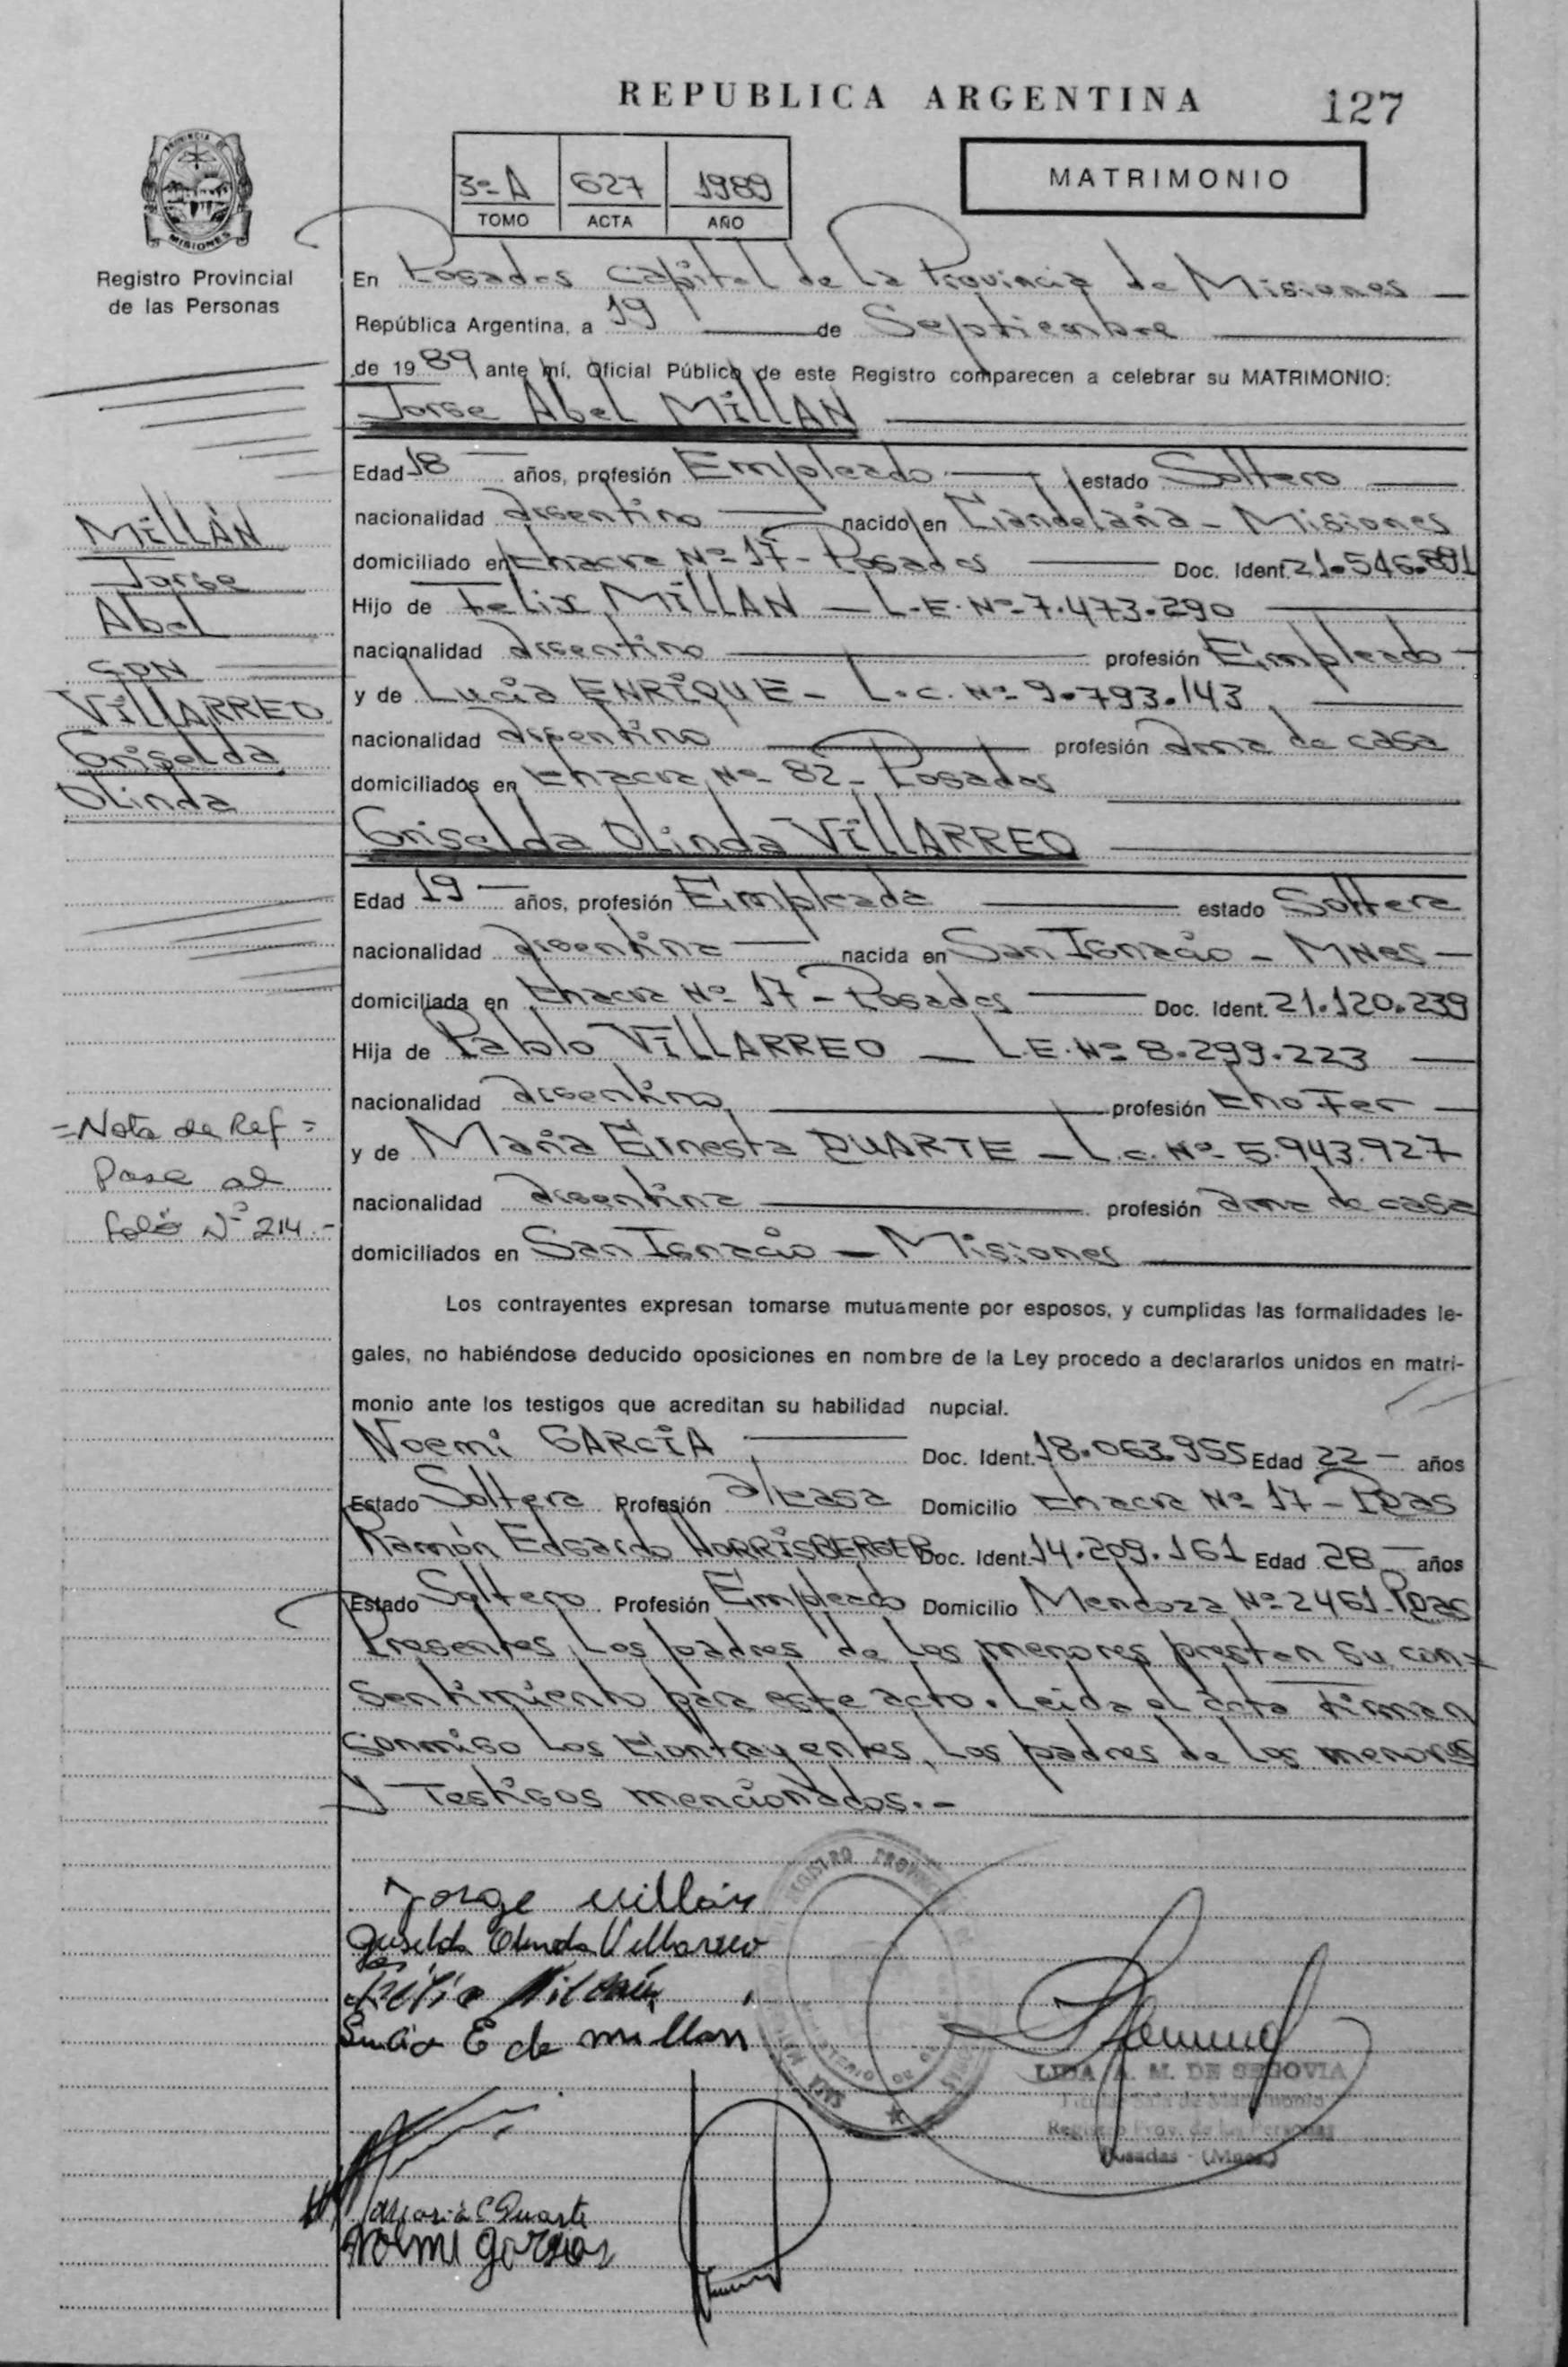 REPUBLICA ARGENTINA
127
3º A 627 1989
TOMO ACTA AÑO
MATRIMONIO
PROVINCIA DE
MISIONES
Registro Provincial
de las Personas
En Posadas Capital de la Provincia de Misiones
República Argentina, a 19 de Septiembre
de 1989 ante mí, Oficial Público de este Registro comparecen a celebrar su MATRIMONIO:
Jorge Abel MILLAN
Edad 18 años, profesión Empleado estado Soltero
nacionalidad argentino nacido en Candelaria - Misiones
domiciliado en Chacra Nº 17 - Posadas Doc. Ident. 21.546.891
Hijo de Felix MILLAN - L.E. Nº 7.473.290
nacionalidad argentino profesión Empleado
y de Lucia ENRIQUE - L.C. Nº 9.793.143
nacionalidad argentina profesión ama de casa
domiciliados en Chacra Nº 82 - Posadas
Griselda Olinda VILLARREO
Edad 19 años, profesión Empleada estado Soltera
nacionalidad argentina nacida en San Ignacio - Mnes
domiciliada en Chacra Nº 17 - Posadas Doc. Ident. 21.120.239
Hija de Pablo VILLARREO - L.E. Nº 8.299.223
nacionalidad argentino profesión Chofer
y de Maria Ernesta DUARTE - L.C. Nº 5.943.927
nacionalidad argentina profesión ama de casa
domiciliados en San Ignacio - Misiones
Los contrayentes expresan tomarse mutuamente por esposos, y cumplidas las formalidades le-
gales, no habiéndose deducido oposiciones en nombre de la Ley procedo a declararlos unidos en matri-
monio ante los testigos que acreditan su habilidad nupcial.
Noemi GARCIA Doc. Ident. 18.063.955 Edad 22 años
Estado Soltera Profesión a/casa Domicilio Chacra Nº 17 - Pdas
Ramón Edgardo HORRISBERGER Doc. Ident. 14.209.161 Edad 28 años
Estado Soltero Profesión Empleado Domicilio Mendoza Nº 2461 - Pdas
Presentes los padres de los menores prestan su con-
sentimiento para este acto. Leida el acta firman
conmigo los Contrayentes, los padres de los menores
y Testigos mencionados.-
MILLÁN
Jorge
Abel
CON
VILLARREO
Griselda
Olinda
=Nota de Ref=
Pase al
folio Nº 214.-
Jorge Millán
Griselda Olinda Villarreo
Lucia E de millan
Maria E Duarte
Noemi Garcia
LIDA A. M. DE SEGOVIA
Registro Prov. de las Personas
Posadas - (Mnes.)